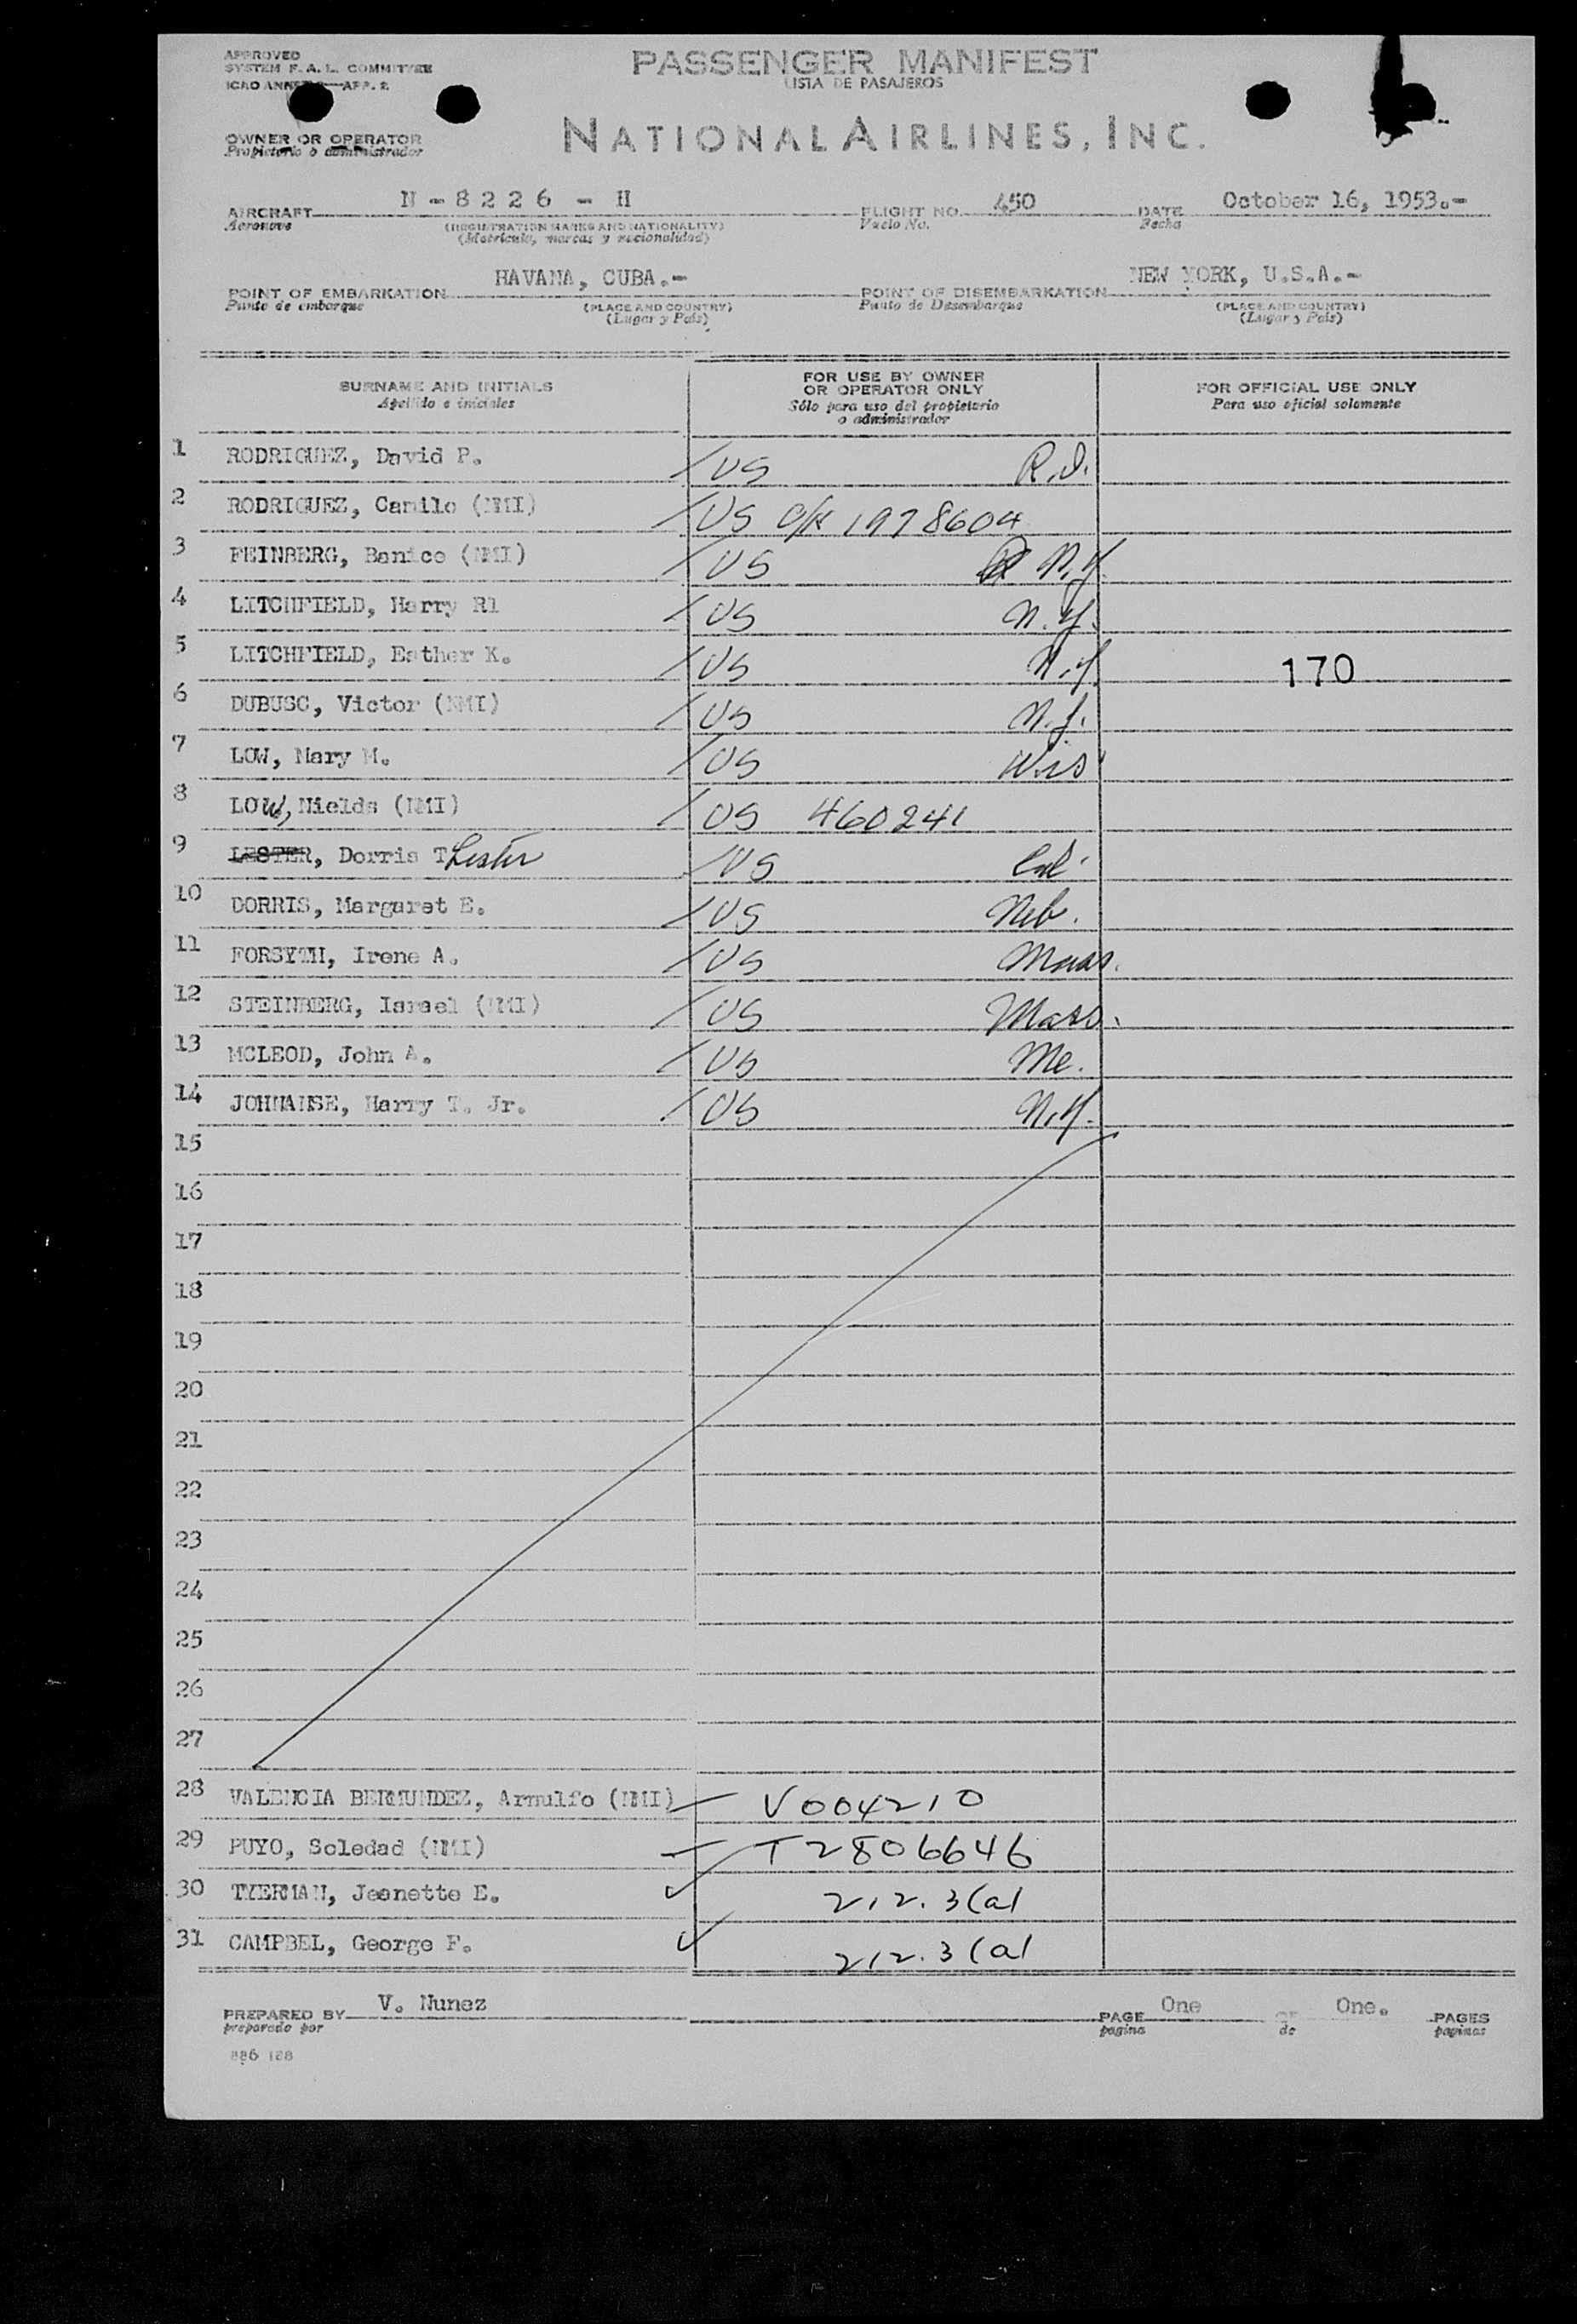 APPROVED
SYSTEM F. A. L. COMMITTEE
ICAO ANNEX APP. 2
PASSENGER MANIFEST
LISTA DE PASAJEROS
NATIONAL AIRLINES, INC.
OWNER OR OPERATOR
Propietario o administrador
AIRCRAFT N - 8 2 2 6 - H FLIGHT NO. 450 DATE October 16, 1953.-
Aeronave (REGISTRATION MARKS AND NATIONALITY) Vuelo No. Fecha
(Matricula, marcas y nacionalidad)
POINT OF EMBARKATION HAVANA, CUBA.- POINT OF DISEMBARKATION NEW YORK, U.S.A.-
Punto de embarque (PLACE AND COUNTRY) Punto de Desembarque (PLACE AND COUNTRY)
(Lugar y País) (Lugar y País)
SURNAME AND INITIALS FOR USE BY OWNER OR OPERATOR ONLY FOR OFFICIAL USE ONLY
Apellido e iniciales Sólo para uso del propietario o administrador Para uso oficial solamente
1 RODRIGUEZ, David P. / US R.I.
2 RODRIGUEZ, Camilo (NMI) / US 1978604
3 FEINBERG, Benice (NMI) / US N.Y.
4 LITCHFIELD, Harry Rl / US N.Y.
5 LITCHFIELD, Esther K. / US N.Y. 170
6 DUBUSC, Victor (NMI) / US N.J.
7 LOW, Mary M. / US Wis
8 LOW, Nields (NMI) / US 460241
9 LESTER, Dorris T Lester / US Cal
10 DORRIS, Margaret E. / US Neb.
11 FORSYTH, Irene A. / US Mass.
12 STEINBERG, Israel (NMI) / US Mass.
13 MCLEOD, John A. / US Me.
14 JOHNANSE, Harry T. Jr. / US N.Y.
15
16
17
18
19
20
21
22
23
24
25
26
27
28 VALENCIA BERMUNDEZ, Arnulfo (NMI) V004210
29 PUYO, Soledad (NMI) T2806646
30 TYERMAN, Jeanette E. 212.3(a)
31 CAMPBEL, George F. 212.3(a)
PREPARED BY V. Nunez PAGE One OF One. PAGES
preparado por pagina de paginas
886 188